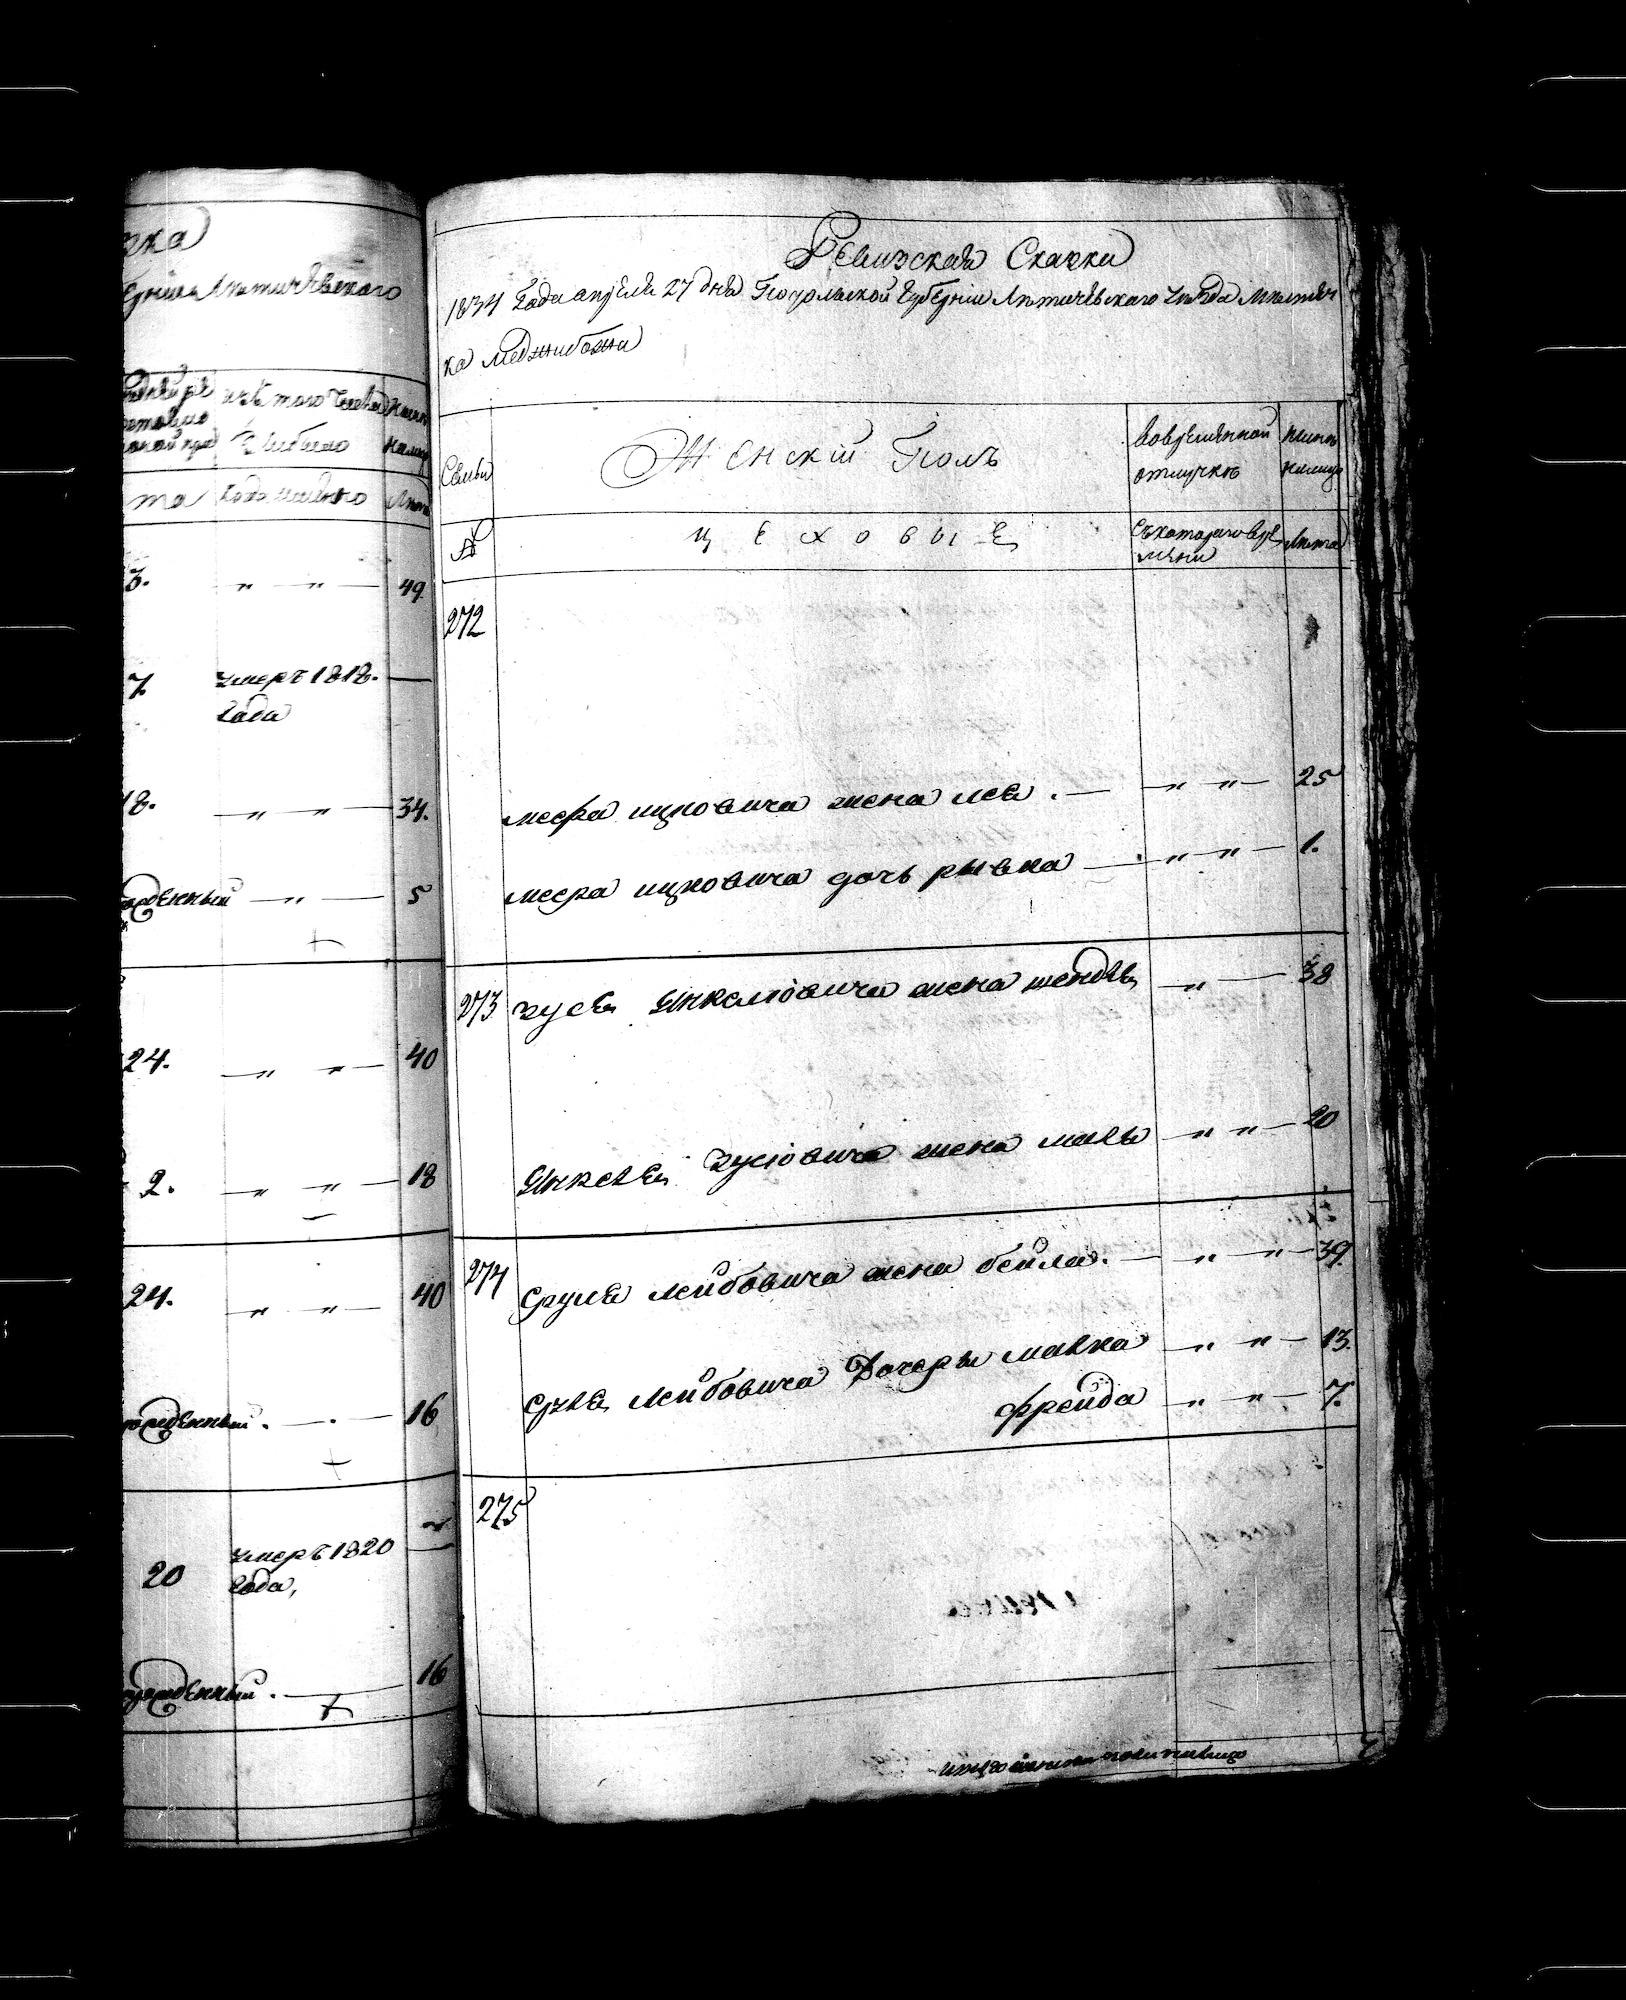 чка
Губерніи Лѣтичевскаго
изъ того числа
выбыло
Лѣта
Когда именно
Лѣта
3. „ „ 49
7. умеръ 1818. —
года
18. „ „ 34.
рожденный — „ — 5
24. „ „ 40
2. „ „ 18
24. „ „ 40
рожденный. — 16
20 умеръ 1820
года,
рожденный. — 16
Ревизская Скаски
1834 Года апреля 27 дня Подольской Губерніи Лѣтичевскаго уѣзда мѣстеч
ка Меджибожа
Семьи
Женскій Полъ
Вовременной
отлучкѣ
Нынѣ
налицо
№
цеховые
Съкотораго вре
мяни
Лѣта
272
меера ицковича жена лея . — „ „ — 25
меера ицковича дочь рывка — „ „ — 1.
273 зуся Янкелювича жена шендля „ — 38
Янкеля зусювича жена маля — „ „ — 20
274 Сруля лейбовича жена бейла. — „ „ — 39
Сруля лейбовича Дочеры малка — „ „ — 13.
фрейда „ „ — 7.
275